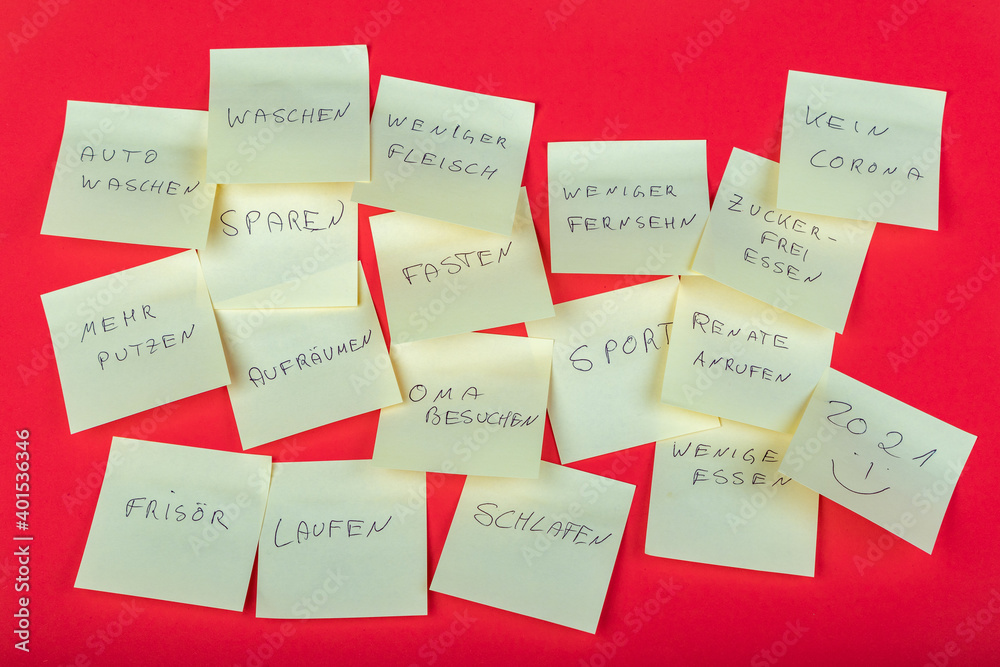 WASCHEN
AUTO
WASCHEN
WENIGER
FLEISCH
KEIN
CORONA
WENIGER
FERNSEHN
ZUCKER-
FREI
ESSEN
SPAREN
FASTEN
MEHR
PUTZEN
AUFRÄUMEN
SPORT
RENATE
ANRUFEN
OMA
BESUCHEN
2021
WENIGE
ESSEN
FRISÖR
LAUFEN
SCHLAFEN
Adobe Stock | #401536346